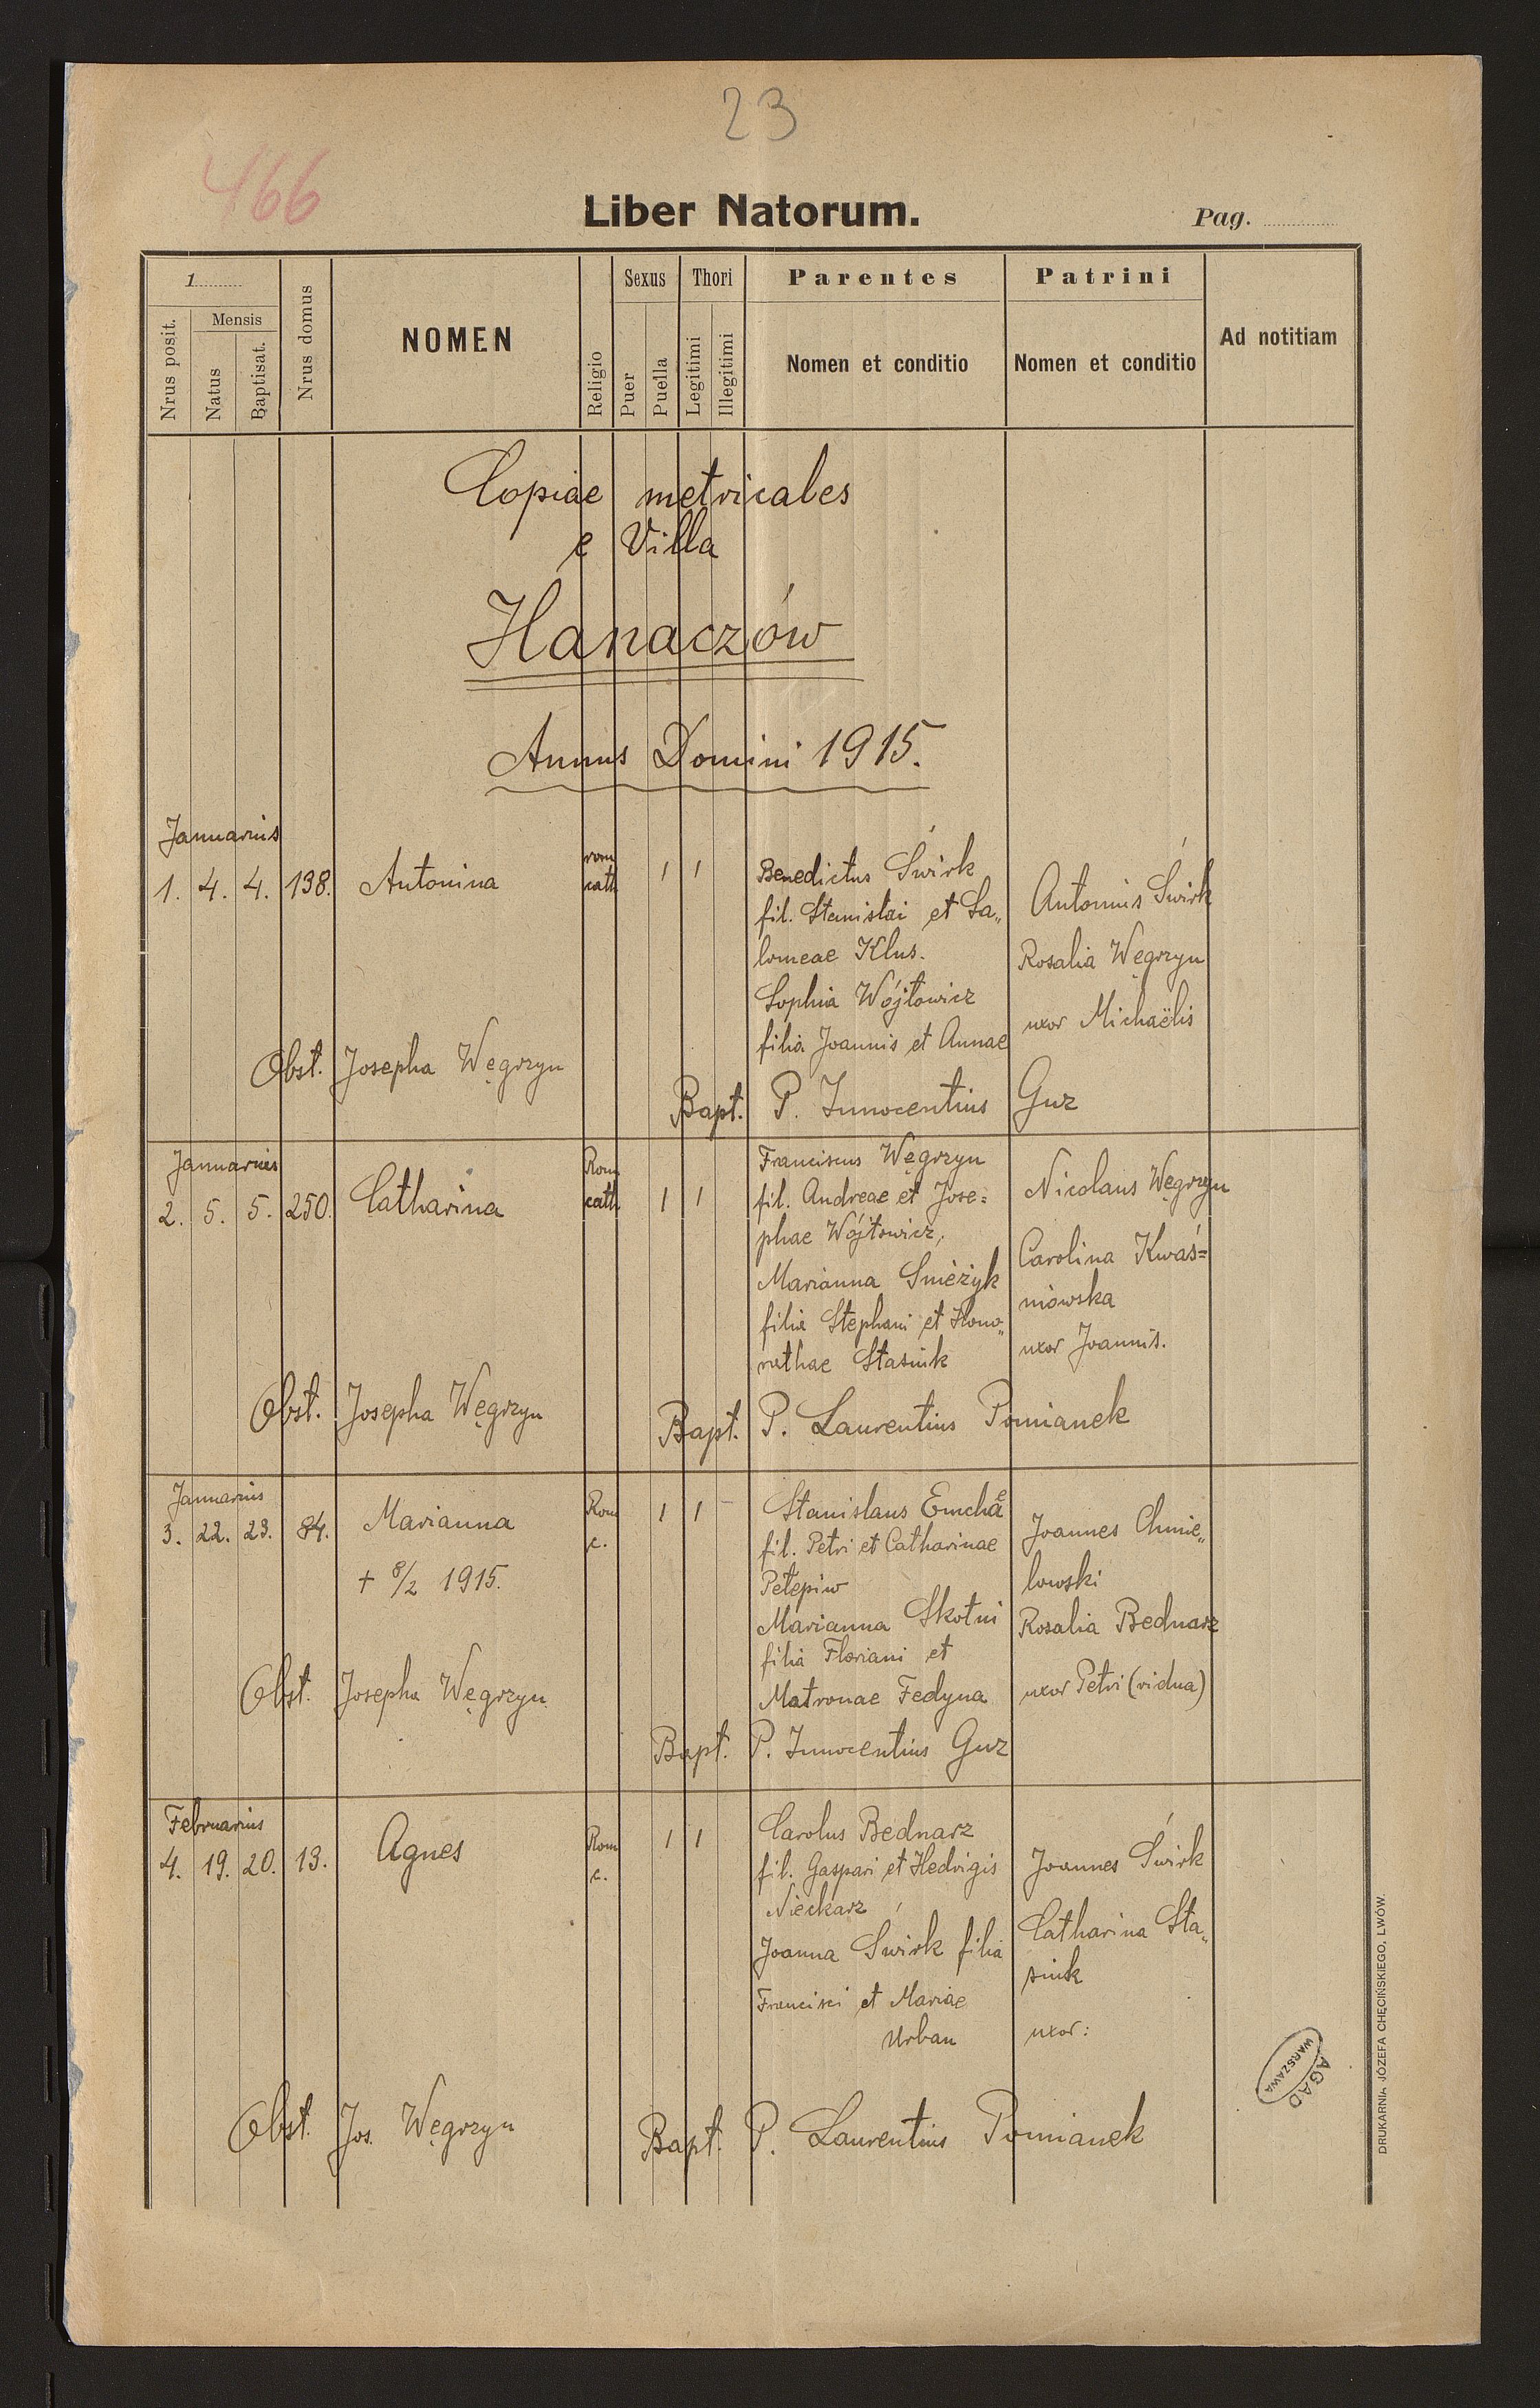 23
466
Liber Natorum.
Pag.
1
Nrus posit.
Mensis
Natus
Baptisat.
Nrus domus
NOMEN
Religio
Sexus
Puer
Puella
Thori
Legitimi
Illegitimi
Parentes
Nomen et conditio
Patrini
Nomen et conditio
Ad notitiam
Copiae metricales
e Villa
Hanaczów
Annus Domini 1915.
Januarius
1. 4. 4. 138. Antonina
rom
cath
1 1
Benedictus Świrk
fil. Stanislai et Sa„
lomeae Klus.
Sophia Wójtowicz
filia Joannis et Annae
Antonius Świrk
Rosalia Węgrzyn
uxor Michaëlis
Obst. Josepha Węgrzyn
Bapt. P. Innocentius Guz
Januarius
2. 5. 5. 250. Catharina
Rom
cath.
1 1
Franciscus Węgrzyn
fil. Andreae et Jose=
phae Wójtowicz,
Marianna Śnieżyk
filia Stephani et Hono„
rathae Stasiuk
Nicolaus Węgrzyn
Carolina Kwaś=
niowska
uxor Joannis.
Obst. Josepha Węgrzyn
Bapt. P. Laurentius Pomianek
Januarius
3. 22. 23. 84. Marianna
+ 8/2 1915.
Rom
c.
1 1
Stanislaus Emcha
fil. Petri et Catharinae
Petepiw
Marianna Skotni
filia Floriani et
Matronae Fedyna
Joannes Chmie„
lowski
Rosalia Bednarz
uxor Petri (vidua)
Obst. Josepha Węgrzyn
Bapt. P. Innocentius Guz
Februarius
4. 19. 20. 13. Agnes
Rom
c.
1 1
Carolus Bednarz
fil. Gaspari et Hedvigis
Nieckarz
Joanna Świrk filia
Francisci et Mariae
Urban
Joannes Świrk
Catharina Sta„
siuk
uxor:
Obst. Jos. Węgrzyn
Bapt. P. Laurentius Pomianek
AGAD
WARSZAWA
DRUKARNIA JÓZEFA CHĘCIŃSKIEGO, LWÓW.